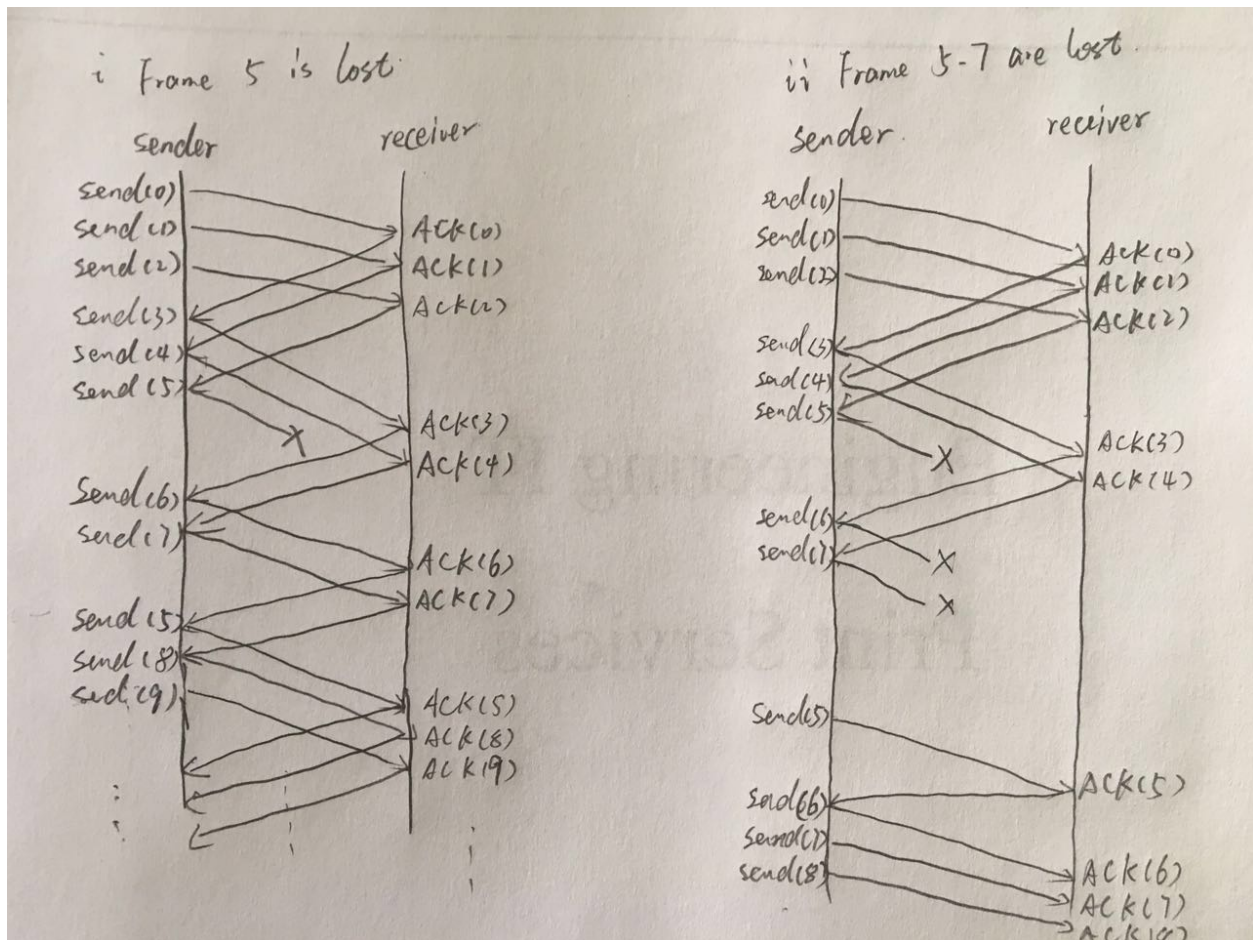 i Frame 5 is lost.
sender receiver
send(0)
send(1)
send(2)
send(3)
send(4)
send(5)
send(6)
send(7)
send(5)
send(8)
sed(9)
ACK(0)
ACK(1)
ACK(2)
ACK(3)
ACK(4)
X
ACK(6)
ACK(7)
ACK(5)
ACK(8)
ACK(9)
ii Frame 5-7 are lost.
sender. receiver
send(0)
send(1)
send(2)
send(3)
sed(4)
send(5)
send(6)
send(7)
send(5)
send(6)
send(7)
send(8)
ACK(0)
ACK(1)
ACK(2)
ACK(3)
X
ACK(4)
X
X
ACK(5)
ACK(6)
ACK(7)
ACK(8)
Engineering IT
Print Services